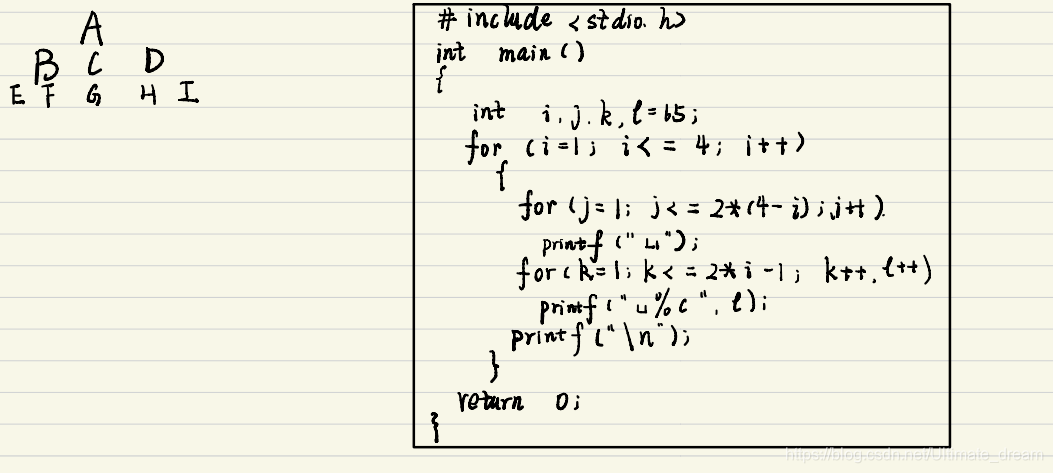 A
B C D
E F G H I
# include <stdio.h>
int main ()
{
int i, j, k, l=65;
for (i=1; i<= 4; i++)
{
for (j=1; j<= 2*(4-i); j++)
printf ("␣");
for (k=1; k<= 2*i-1; k++, l++)
printf ("␣%c", l);
printf ("\n");
}
return 0;
}
https://blog.csdn.net/Ultimate_dream